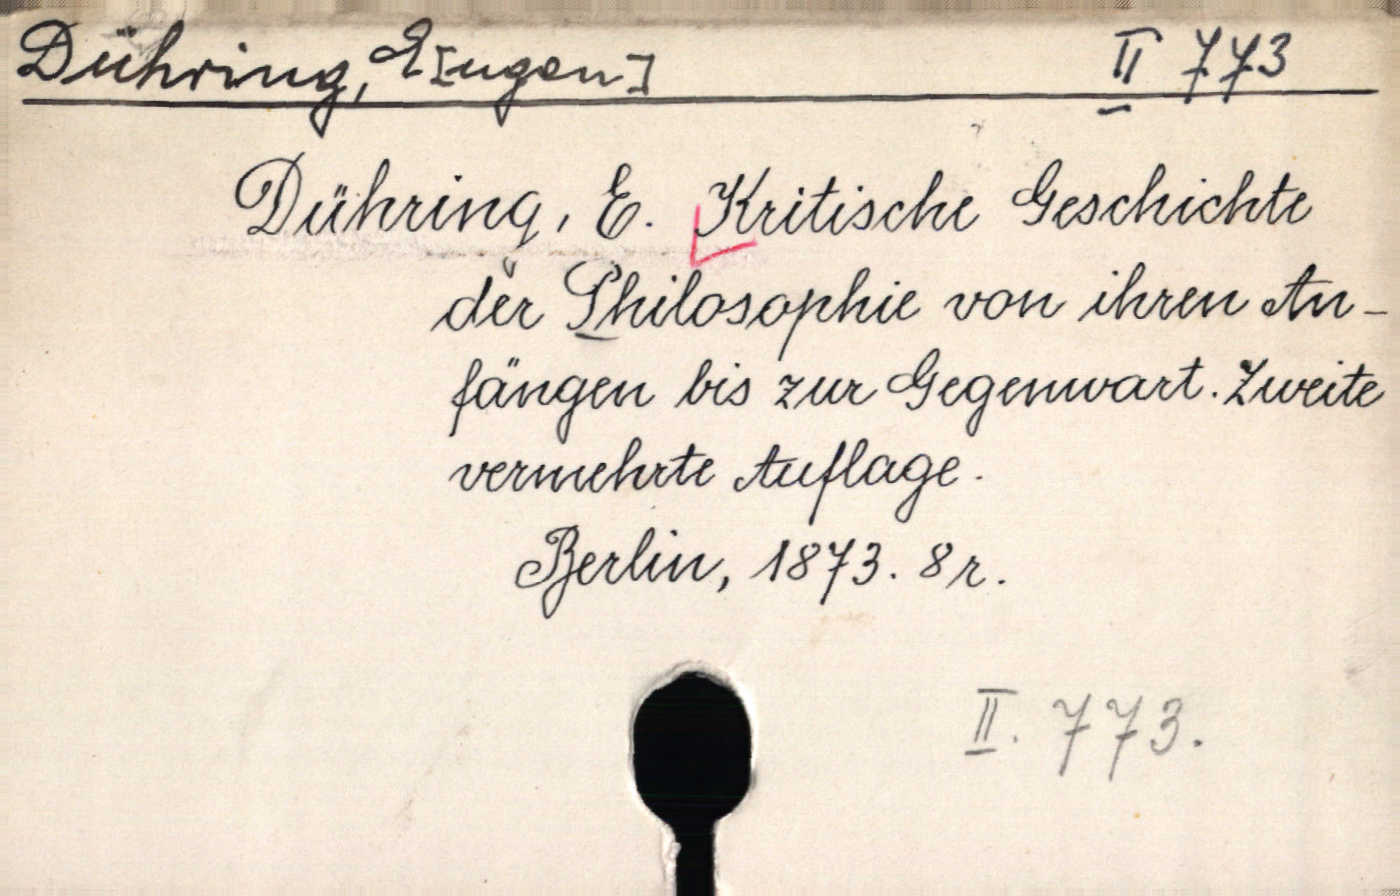 Dühring, E[ugen] II 773
Dühring, E. Kritische Geschichte
der Philosophie von ihren An-
fängen bis zur Gegenwart. Zweite
vermehrte Auflage.
Berlin, 1873. 8r.
II. 773.